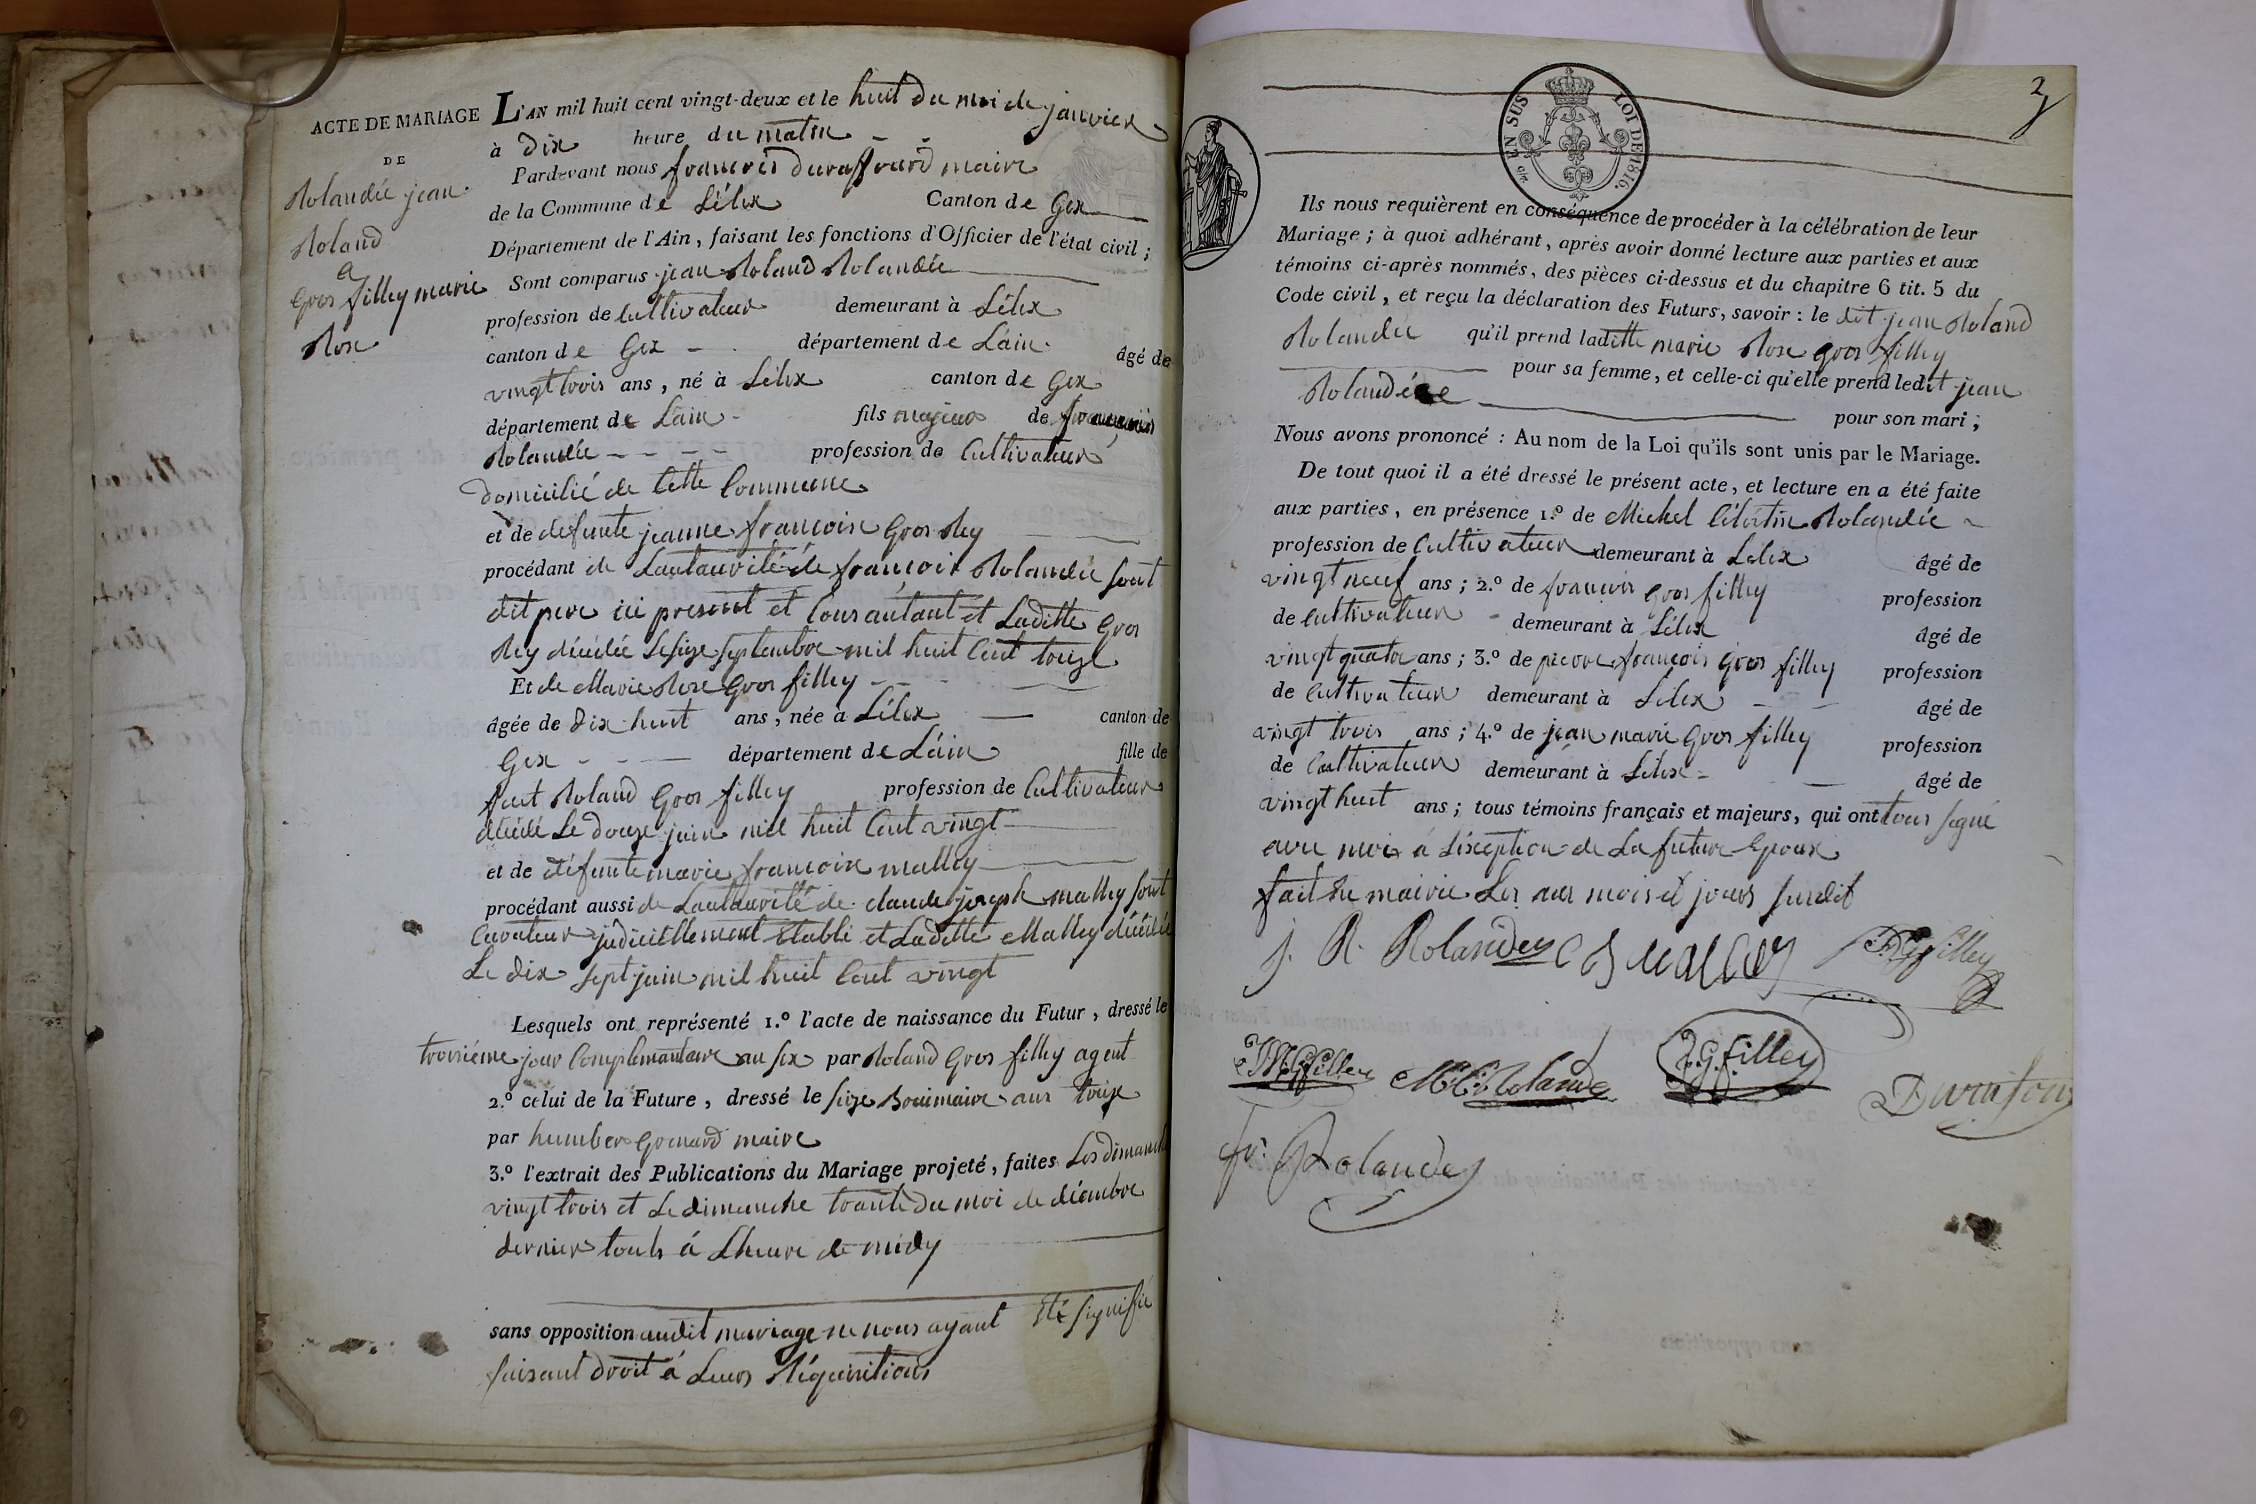 ACTE DE MARIAGE
DE
Rolandée jean
Roland
a
Gros filley marie
Rose
L'AN mil huit cent vingt-deux et le huit du moi de janvier
à dix heure du matin
Pardevant nous françois duraffourd maire
de la Commune de Lélex Canton de Gex
Département de l'Ain, faisant les fonctions d'Officier de l'état civil;
Sont comparus jean Roland Rolandée
profession de Cultivateur demeurant à Lélex
canton de Gex département de Lain âgé de
vingt trois ans, né à Lélex canton de Gex
département de Lain fils majeur de françois
Rolandée profession de Cultivateur
domicilié de Cette Commune
et de defunte jeanne françoise Gros Rey
procédant de Lautaurité de françois Rolandée sont
dit pere ici present et Consantant et Laditte Gros
Rey décédée Le seize septembre mil huit Cent treize
Et de Marie Rose Gros filley
âgée de dix huit ans, née à Lélex canton de
Gex département de Láin fille de
feut Roland Gros filley profession de Cultivateur
décédé Le douze juin mil huit Cent vingt
et de défunte marie françoise malley
procédant aussi de Lautaurité de claude joseph malley sont
Curateur judiciellement Etabli et Laditte Malley décédée
Le dix sept juin mil huit Cent vingt
Lesquels ont représenté 1.º l'acte de naissance du Futur, dressé le
troisiéme jour Complémantaire an six par Roland Gros filley agent
2.º celui de la Future, dressé le seize Brumaire an treize
par humbert Grenard maire
3.º l'extrait des Publications du Mariage projeté, faites Les dimanche
vingt trois et Le dimanche trante du moi de décembre
dernier touts á Lheure de midy
sans opposition audit mariage ne nous ayant Eté signiffié
faisant droit á Leurs Réquisitions
3
EN SUS
LOI DE 1816.
Ils nous requièrent en conséquence de procéder à la célébration de leur
Mariage; à quoi adhérant, après avoir donné lecture aux parties et aux
témoins ci-après nommés, des pièces ci-dessus et du chapitre 6 tit. 5 du
Code civil, et reçu la déclaration des Futurs, savoir: le dit jean Roland
Rolandée qu'il prend laditte marie Rose gros filley
pour sa femme, et celle-ci qu'elle prend ledit jean
Rolandée pour son mari;
Nous avons prononcé: Au nom de la Loi qu'ils sont unis par le Mariage.
De tout quoi il a été dressé le présent acte, et lecture en a été faite
aux parties, en présence 1.º de Michel Célestin Rolandée
profession de Cultivateur demeurant à Lélex âgé de
vingt neuf ans; 2.º de françois gros filley profession
de Cultivateur demeurant à Lélex âgé de
vingt quatre ans; 3.º de pierre françois gros filley profession
de Cultivateur demeurant à Lélex âgé de
vingt trois ans; 4.º de jean marie Gros filley profession
de Cultivateur demeurant à Lélex âgé de
vingt huit ans; tous témoins français et majeurs, qui ont tous signé
avec moi á Léxception de La future Epoux
fait En mairie Les an mois et jours surdit
J. R. Rolandey C J Malley P.F.G filley
J M G filley M C Rolandey f.G.filley Duraffourd
fr. Rolandey